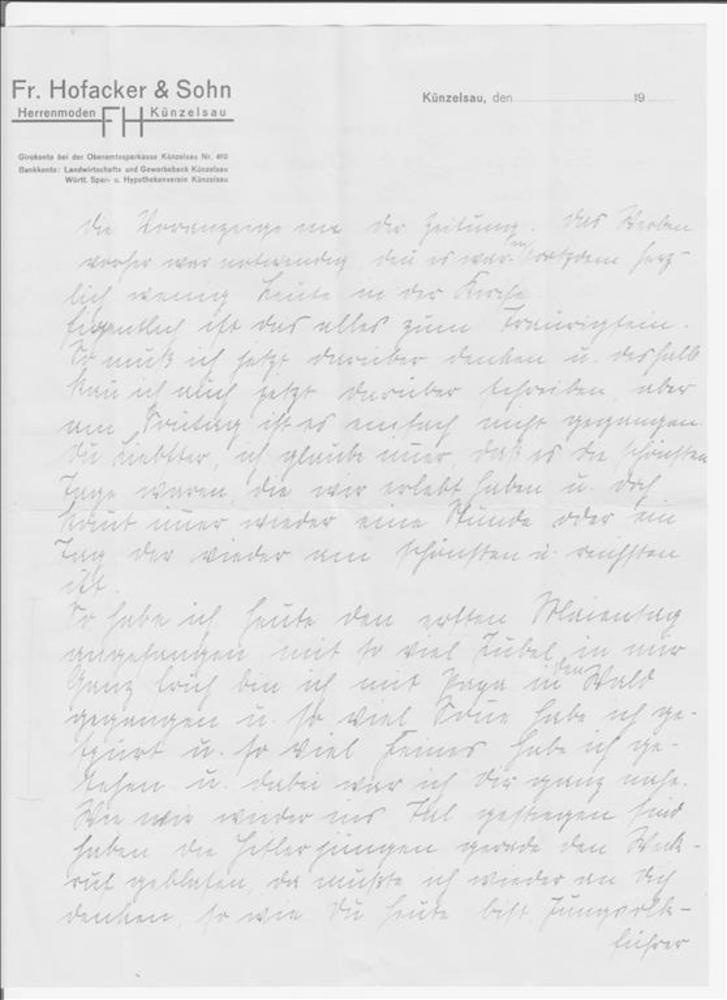 Fr. Hofacker & Sohn
Herrenmoden FH Künzelsau
Künzelsau, den 19
Girokonto bei der Oberamtssparkasse Künzelsau Nr. 410
Bankkonto: Landwirtschafts und Gewerbebank Künzelsau
Württ. Spar- u. Hypothekenverein Künzelsau
die Voranzeige in der Zeitung. Das Werben
vorher war notwendig, den es war trotzdem herz-
lich wenig Leute in der Kirche.
Eigentlich ist das alles zum Traurigsein.
So muß ich jetzt darüber denken u. deshalb
kan ich auch jetzt darüber schreiben, aber
am Sontag ist es einfach nicht gegangen.
Du Liebster, ich glaube imer, daß es die schönsten
Tage waren, die wir erlebt haben u. doch
komt imer wieder eine Stunde oder ein
Tag der wieder am schönsten u. reichsten
ist.
So habe ich heute den ersten Maientag
angefangen mit so viel Jubel in mir
Ganz früh bin ich mit Papa in den Wald
gegangen u. so viel Sone habe ich ge-
spürt u. so viel Feines habe ich ge-
sehen u. dabei war ich Dir ganz nahe.
Wie wir wieder ins Tal gestiegen sind
haben die Hitlerjungen gerade den Weck-
ruf geblasen, da mußte ich wieder an Dich
denken, so wie Du heute bist Jungvolk-
führer